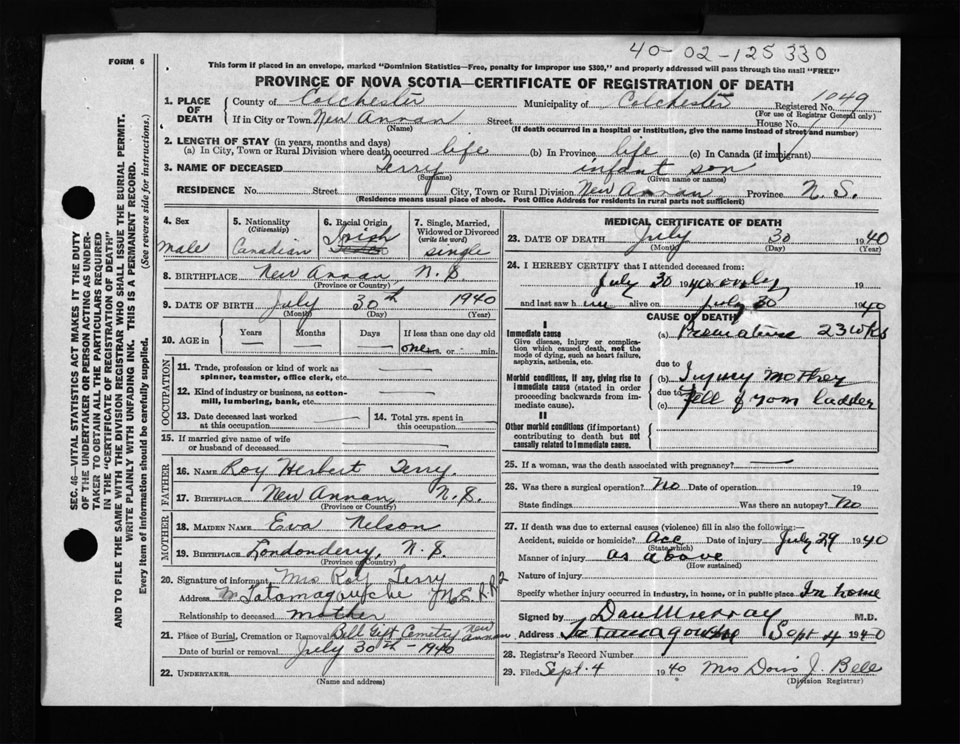 40-02-125330
This form if placed in an envelope, marked "Dominion Statistics—Free, penalty for improper use $300," and properly addressed will pass through the mail "FREE"
FORM 6
PROVINCE OF NOVA SCOTIA—CERTIFICATE OF REGISTRATION OF DEATH
1. PLACE OF DEATH County of Colchester Municipality of Colchester Registered No. 1049
(For use of Registrar General only)
If in City or Town New Annan Street House No.
(Name) (If death occurred in a hospital or institution, give the name instead of street and number)
2. LENGTH OF STAY (in years, months and days)
(a) In City, Town or Rural Division where death occurred life (b) In Province life (c) In Canada (if immigrant)
3. NAME OF DECEASED Terry infant son
(Surname) (Given name or names)
RESIDENCE No. Street City, Town or Rural Division New Annan Province N. S.
(Residence means usual place of abode. Post Office Address for residents in rural parts not sufficient)
4. Sex 5. Nationality (Citizenship) 6. Racial Origin 7. Single, Married, Widowed or Divorced (write the word)
male Canadian Irish single
8. BIRTHPLACE New Annan, N. S.
(Province or Country)
9. DATE OF BIRTH July 30th 1940
(Month) (Day) (Year)
10. AGE in Years Months Days If less than one day old
— — — one hrs. or min.
OCCUPATION
11. Trade, profession or kind of work as spinner, teamster, office clerk, etc. —
12. Kind of industry or business, as cotton-mill, lumbering, bank, etc. —
13. Date deceased last worked at this occupation — 14. Total yrs. spent in this occupation —
15. If married give name of wife or husband of deceased
FATHER
16. NAME Roy Herbert Terry.
17. BIRTHPLACE New Annan, N. S.
(Province or Country)
MOTHER
18. MAIDEN NAME Eva Nelson
19. BIRTHPLACE Londonderry, N. S.
(Province or Country)
20. Signature of informant Mrs Roy Terry
Address Tatamagouche N.S. R.R2
Relationship to deceased mother
21. Place of Burial, Cremation or Removal Bell Cemetry New Annan
Date of burial or removal July 30th-1940
22. UNDERTAKER
(Name and address)
MEDICAL CERTIFICATE OF DEATH
23. DATE OF DEATH July 30 1940
(Month) (Day) (Year)
24. I HEREBY CERTIFY that I attended deceased from:
July 30 1940 only 19
and last saw him alive on July 30 1940
CAUSE OF DEATH
I
Immediate cause (a) Premature 23 wks
Give disease, injury or complication which caused death, not the mode of dying, such as heart failure, asphyxia, asthenia, etc.
due to
Morbid conditions, if any, giving rise to immediate cause (stated in order proceeding backwards from immediate cause).
(b) Injury Mother
due to
(c) fell from ladder
II
Other morbid conditions (if important) contributing to death but not causally related to immediate cause.
25. If a woman, was the death associated with pregnancy? —
26. Was there a surgical operation? No Date of operation 19
State findings Was there an autopsy? No
27. If death was due to external causes (violence) fill in also the following:—
Accident, suicide or homicide? Acc Date of injury July 29 1940
(State which)
Manner of injury as above
(How sustained)
Nature of injury
Specify whether injury occurred in industry, in home, or in public place In home
Signed by Dan Murray M.D.
Address Tatamagouche Sept 4 1940
28. Registrar's Record Number
29. Filed Sept. 4 1940 Mrs Doris J. Bell
(Division Registrar)
SEC. 46—VITAL STATISTICS ACT MAKES IT THE DUTY
OF THE UNDERTAKER OR PERSON ACTING AS UNDER-
TAKER TO OBTAIN ALL THE PARTICULARS REQUIRED
IN THE "CERTIFICATE OF REGISTRATION OF DEATH"
AND TO FILE THE SAME WITH THE DIVISION REGISTRAR WHO SHALL ISSUE THE BURIAL PERMIT.
WRITE PLAINLY WITH UNFADING INK. THIS IS A PERMANENT RECORD.
Every item of information should be carefully supplied. (See reverse side for instructions.)